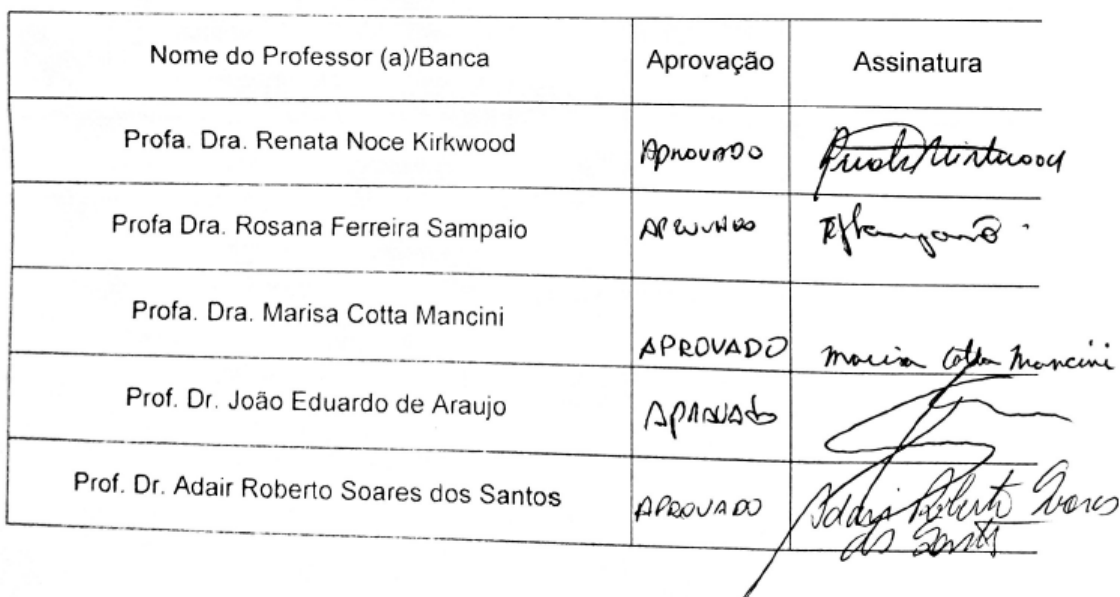 Nome do Professor (a)/Banca Aprovação Assinatura
Profa. Dra. Renata Noce Kirkwood APROVADO
Profa Dra. Rosana Ferreira Sampaio APROVADO
Profa. Dra. Marisa Cotta Mancini APROVADO Marisa Cotta Mancini
Prof. Dr. João Eduardo de Araujo APROVADO
Prof. Dr. Adair Roberto Soares dos Santos APROVADO Adair Roberto Soares
dos Santos